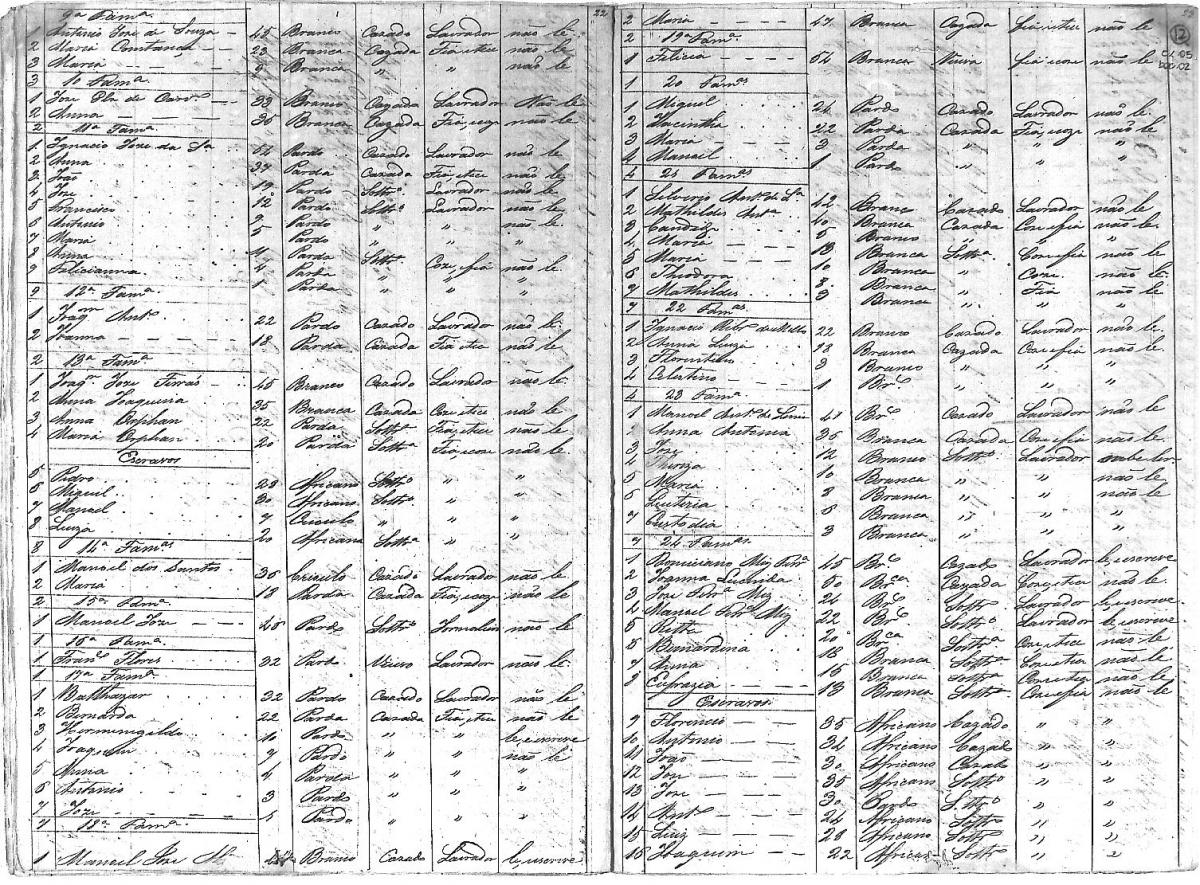 22
9ª Fama.
1 Antonio Joze de Souza 45 Branco Cazado Lavrador não le
2 Maria Constança 23 Branca Cazada Fia, e tece não le
3 Maria 9 Branca " " não le
3 10 Fama.
1 Joze 39 Branco Cazado Lavrador Não le
2 Anna 36 Branca Cazada Fia, coze não le
2 11ª Fama.
1 Ignacio Joze da Sa 52 Pardo Cazado Lavrador não le
2 Anna 37 Parda Cazada Fia, e tece não le
3 João 19 Pardo Soltro. Lavrador não le
4 Joze 12 Pardo Soltro. Lavrador não le
5 Francisco 9 Pardo " " não le
6 Antonio 5 Pardo " "
7 Maria 11 Parda Soltra. Coze, e fia não le
8 Anna 4 Parda " "
9 Felicianna 1 Parda " "
9 12ª Fama.
1 Joaqm. Anto. 22 Pardo Cazado Lavrador não le
2 Joanna 18 Parda Cazada Fia, e tece não le
2 13ª Fama.
1 Joaqm. Joze 45 Branco Cazado Lavrador não le
2 Anna Joaquina 35 Branca Cazada Coze, e tece não le
3 Anna Orphan 22 Parda Soltra. Fia, e tece não le
4 Maria Orphan 20 Parda Soltra. Fia, e coze não le
Escravos
5 Pedro 28 Africano Soltro. " "
6 Miguel 30 Africano Soltro. " "
7 Manoel 7 Crioulo " " "
8 Luiza 20 Africana Soltra. " "
8 14ª Famas.
1 Manoel dos Santos 36 Crioulo Cazado Lavrador não le
2 Maria 18 Parda Cazada Fia, coze não le
2 15ª Fama.
1 Manoel Joze 48 Pardo Soltro. Jornaleiro não le
1 16ª Fama.
1 Franco. Flores 32 Pardo Viuvo Lavrador não le
1 17ª Fama.
1 Balthazar 32 Pardo Cazado Lavrador não le
2 Bernarda 22 Parda Cazada Fia, e tece não le
3 Hermenegildo 10 Pardo " le, e escreve
4 Joaquim 7 Pardo " não le
5 Anna 4 Parda " "
6 Antonio 3 Pardo " "
7 Joze 1 Pardo " "
7 18ª Fama.
1 Manoel Joze Branco Cazado Lavrador le, escreve
12
DOC.02
2 Maria 47 Branca Cazada Fia, e tece não le
2 19ª Fama.
1 Felicia 52 Branca Viuva Fia, e coze não le
1 20 Famas.
1 Miguel 24 Pardo Cazado Lavrador não le
2 Jacintha 22 Parda Cazada Fia, coze não le
3 Maria 3 Parda " " "
4 Manoel 1 Pardo " " "
4 21 Famas.
1 Silverio Anto. da Sa. 42 Branco Cazado Lavrador não le
2 Mathildes Anta. 40 Branca Cazada Coze, e fia não le
3 Candido 5 Branco " " "
4 Maria 18 Branca Soltra. Coze, e fia não le
5 Maria 10 Branca " Coze não le
6 Theodora 8 Branca " Fia não le
7 Mathildes 3 Branca " " "
7 22 Famas.
1 Ignacio 22 Branco Cazado Lavrador não le
2 Anna Luiza 18 Branca Cazada Coze, e fia não le
3 3 Branco " " "
4 Celestino 1 Bro. " " "
4 23 Fama.
1 Manoel Anto. de 41 Bro. Cazado Lavrador não le
2 Anna Antonia 36 Branca Cazada Coze, e fia não le
3 Joze 12 Branco Soltro. Lavrador sabe ler
4 Thereza 10 Branca " " não le
5 Maria 8 Branca " " não le
6 Leuteria 6 Branca " "
7 Custodia 3 Branca " "
7 24 Famas.
1 45 Bro. Cazado Lavrador le, escreve
2 Joanna Lucinda 50 Bra. Cazada Coze, e tece não le
3 Joze 24 Bro. Soltro. Lavrador le, escreve
4 Manoel 22 Bro. Soltro. Lavrador le, escreve
5 Ritta 20 Bra. Soltra. Coze, e tece não le
6 Bernardina 18 Branca Soltra. Coze, e tece não le
7 Anna 15 Branca Soltra. Coze, e tece não le
8 Eufrazia 13 Branca Soltra. Coze, e fia não le
Escravos
9 Florencio 35 Africano Cazado " "
10 Antonio 32 Africano Cazado " "
11 João 30 Africano Cazado " "
12 Joze 35 Africano Soltro. " "
13 Joze 30 Pardo Soltro. " "
14 Anto. 24 Africano Soltro. " "
15 Luiz 28 Africano Soltro. " "
16 Joaquim 22 African Soltro. " "